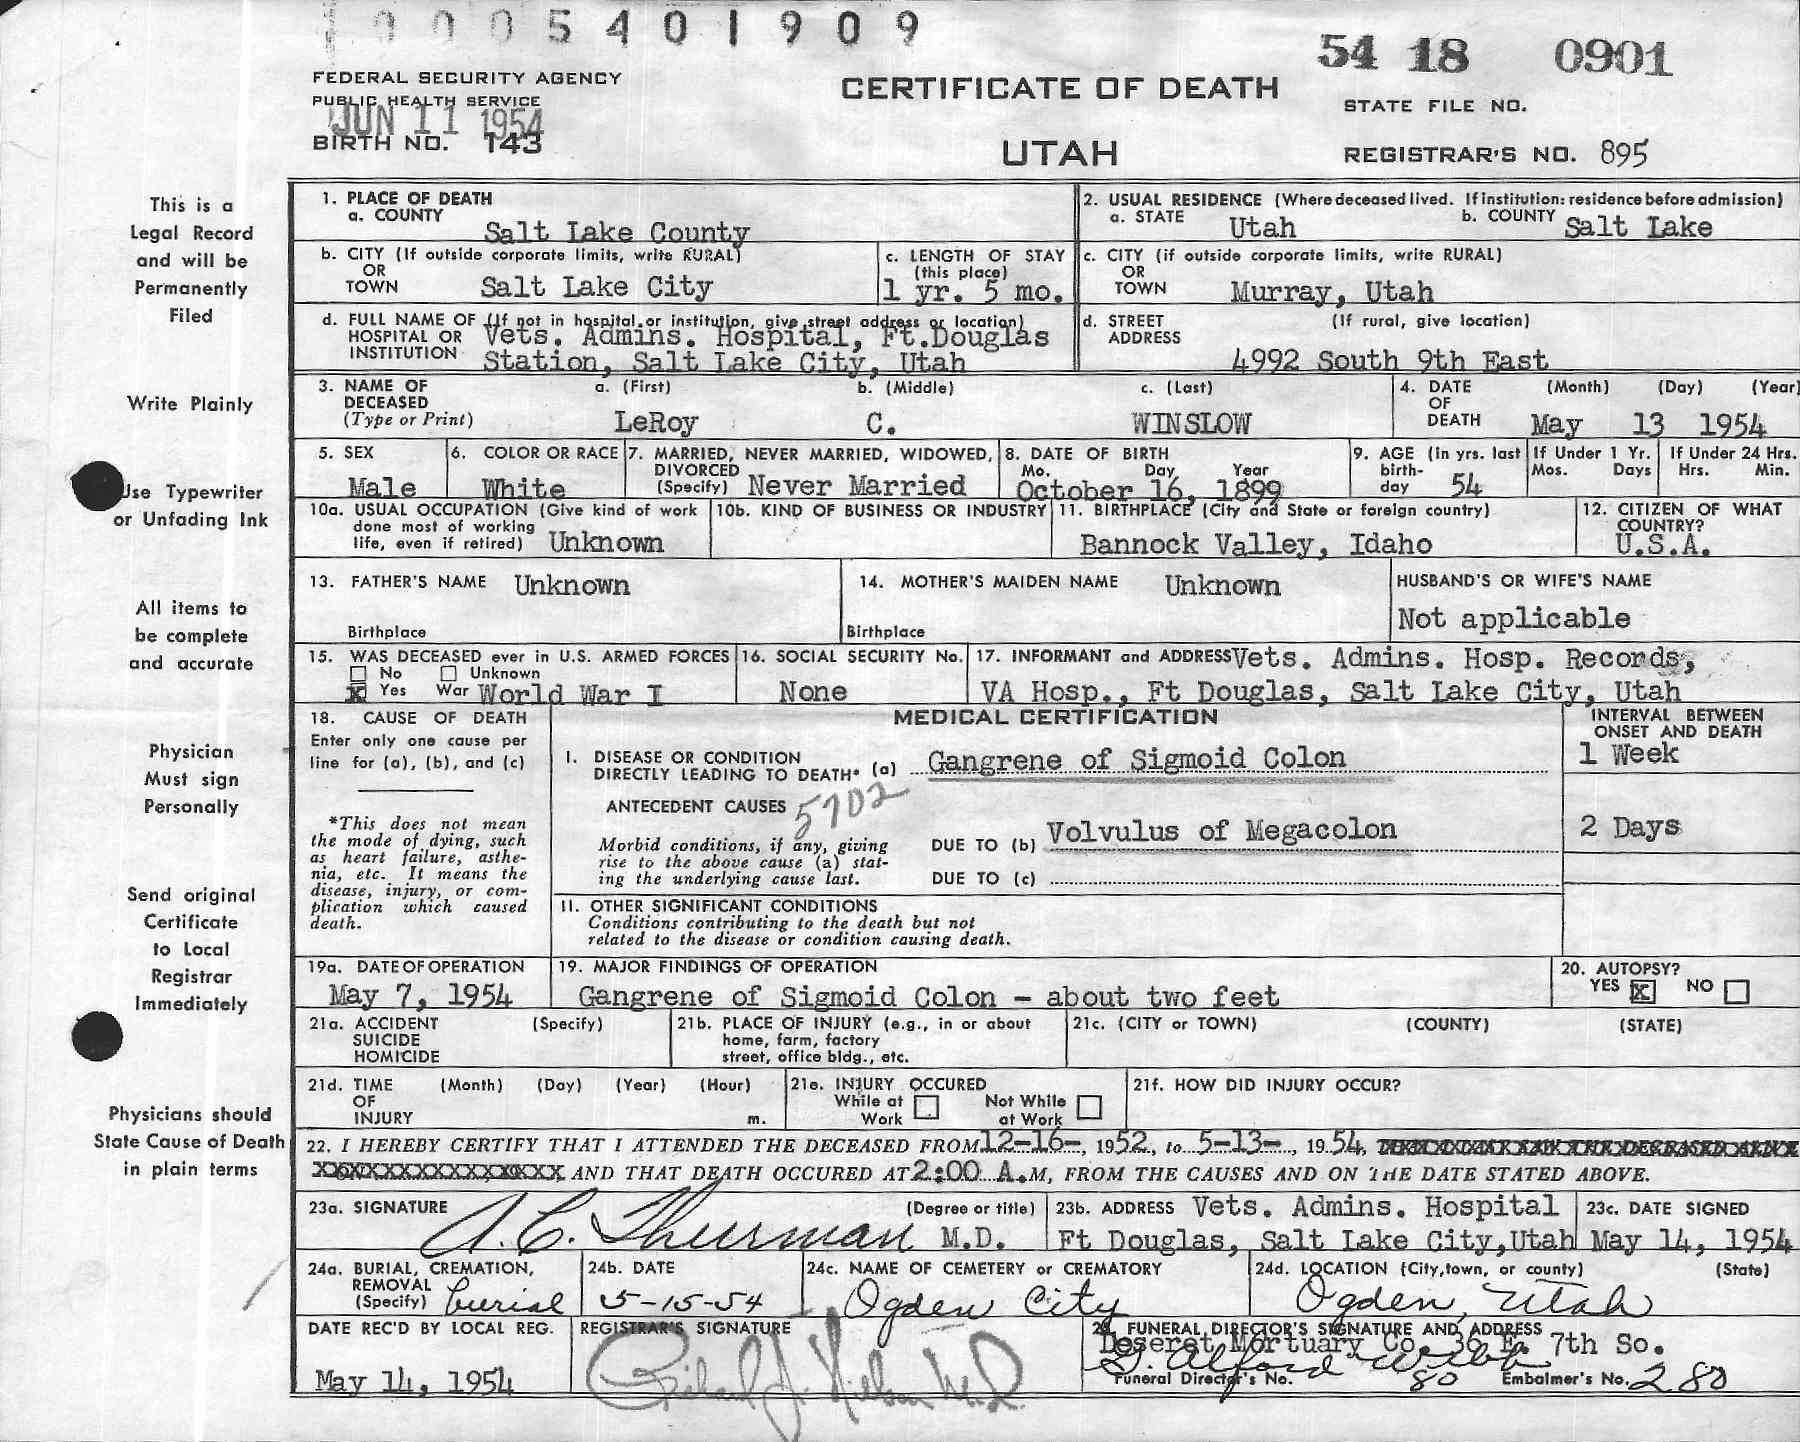 0005401909
54 18 0901
FEDERAL SECURITY AGENCY
PUBLIC HEALTH SERVICE
JUN 11 1954
BIRTH NO. 143
CERTIFICATE OF DEATH
UTAH
STATE FILE NO.
REGISTRAR'S NO. 895
This is a
Legal Record
and will be
Permanently
Filed
Write Plainly
Use Typewriter
or Unfading Ink
All items to
be complete
and accurate
Physician
Must sign
Personally
Send original
Certificate
to Local
Registrar
Immediately
Physicians should
State Cause of Death
in plain terms
1. PLACE OF DEATH
a. COUNTY Salt Lake County
2. USUAL RESIDENCE (Where deceased lived. If institution: residence before admission)
a. STATE Utah b. COUNTY Salt Lake
b. CITY (If outside corporate limits, write RURAL)
OR
TOWN Salt Lake City
c. LENGTH OF STAY
(this place)
1 yr. 5 mo.
c. CITY (if outside corporate limits, write RURAL)
OR
TOWN Murray, Utah
d. FULL NAME OF (If not in hospital or institution, give street address or location)
HOSPITAL OR Vets. Admins. Hospital, Ft.Douglas
INSTITUTION Station, Salt Lake City, Utah
d. STREET (If rural, give location)
ADDRESS
4992 South 9th East
3. NAME OF a. (First) b. (Middle) c. (Last)
DECEASED
(Type or Print) LeRoy C. WINSLOW
4. DATE (Month) (Day) (Year)
OF
DEATH May 13 1954
5. SEX
Male
6. COLOR OR RACE
White
7. MARRIED, NEVER MARRIED, WIDOWED,
DIVORCED
(Specify) Never Married
8. DATE OF BIRTH
Mo. Day Year
October 16, 1899
9. AGE (In yrs. last
birth-
day 54
If Under 1 Yr.
Mos. Days
If Under 24 Hrs.
Hrs. Min.
10a. USUAL OCCUPATION (Give kind of work
done most of working
life, even if retired) Unknown
10b. KIND OF BUSINESS OR INDUSTRY
11. BIRTHPLACE (City and State or foreign country)
Bannock Valley, Idaho
12. CITIZEN OF WHAT
COUNTRY?
U.S.A.
13. FATHER'S NAME Unknown
Birthplace
14. MOTHER'S MAIDEN NAME Unknown
Birthplace
HUSBAND'S OR WIFE'S NAME
Not applicable
15. WAS DECEASED ever in U.S. ARMED FORCES
No Unknown
x Yes War World War I
16. SOCIAL SECURITY No.
None
17. INFORMANT and ADDRESS Vets. Admins. Hosp. Records,
VA Hosp., Ft Douglas, Salt Lake City, Utah
18. CAUSE OF DEATH
Enter only one cause per
line for (a), (b), and (c)
*This does not mean
the mode of dying, such
as heart failure, asthe-
nia, etc. It means the
disease, injury, or com-
plication which caused
death.
MEDICAL CERTIFICATION
INTERVAL BETWEEN
ONSET AND DEATH
I. DISEASE OR CONDITION
DIRECTLY LEADING TO DEATH* (a) Gangrene of Sigmoid Colon
1 Week
ANTECEDENT CAUSES 5702
Morbid conditions, if any, giving
rise to the above cause (a) stat-
ing the underlying cause last.
DUE TO (b) Volvulus of Megacolon
2 Days
DUE TO (c)
11. OTHER SIGNIFICANT CONDITIONS
Conditions contributing to the death but not
related to the disease or condition causing death.
19a. DATE OF OPERATION
May 7, 1954
19. MAJOR FINDINGS OF OPERATION
Gangrene of Sigmoid Colon - about two feet
20. AUTOPSY?
YES x NO
21a. ACCIDENT (Specify)
SUICIDE
HOMICIDE
21b. PLACE OF INJURY (e.g., in or about
home, farm, factory
street, office bldg., etc.
21c. (CITY or TOWN) (COUNTY) (STATE)
21d. TIME (Month) (Day) (Year) (Hour)
OF
INJURY m.
21e. INJURY OCCURED
While at Not While
Work at Work
21f. HOW DID INJURY OCCUR?
22. I HEREBY CERTIFY THAT I ATTENDED THE DECEASED FROM 12-16-, 1952, to 5-13-, 1954,
AND THAT DEATH OCCURED AT 2:00 A.M, FROM THE CAUSES AND ON THE DATE STATED ABOVE.
23a. SIGNATURE (Degree or title)
A. C. Thurman M.D.
23b. ADDRESS Vets. Admins. Hospital
Ft Douglas, Salt Lake City,Utah
23c. DATE SIGNED
May 14, 1954
24a. BURIAL, CREMATION,
REMOVAL
(Specify) burial
24b. DATE
5-15-54
24c. NAME OF CEMETERY or CREMATORY
Ogden City
24d. LOCATION (City,town, or county) (State)
Ogden, Utah
DATE REC'D BY LOCAL REG.
May 14, 1954
REGISTRAR'S SIGNATURE
Richard J. Nielson M.D.
FUNERAL DIRECTOR'S SIGNATURE AND ADDRESS
Deseret Mortuary Co. 36 E. 7th So.
Funeral Director's No. 80 Embalmer's No. 280